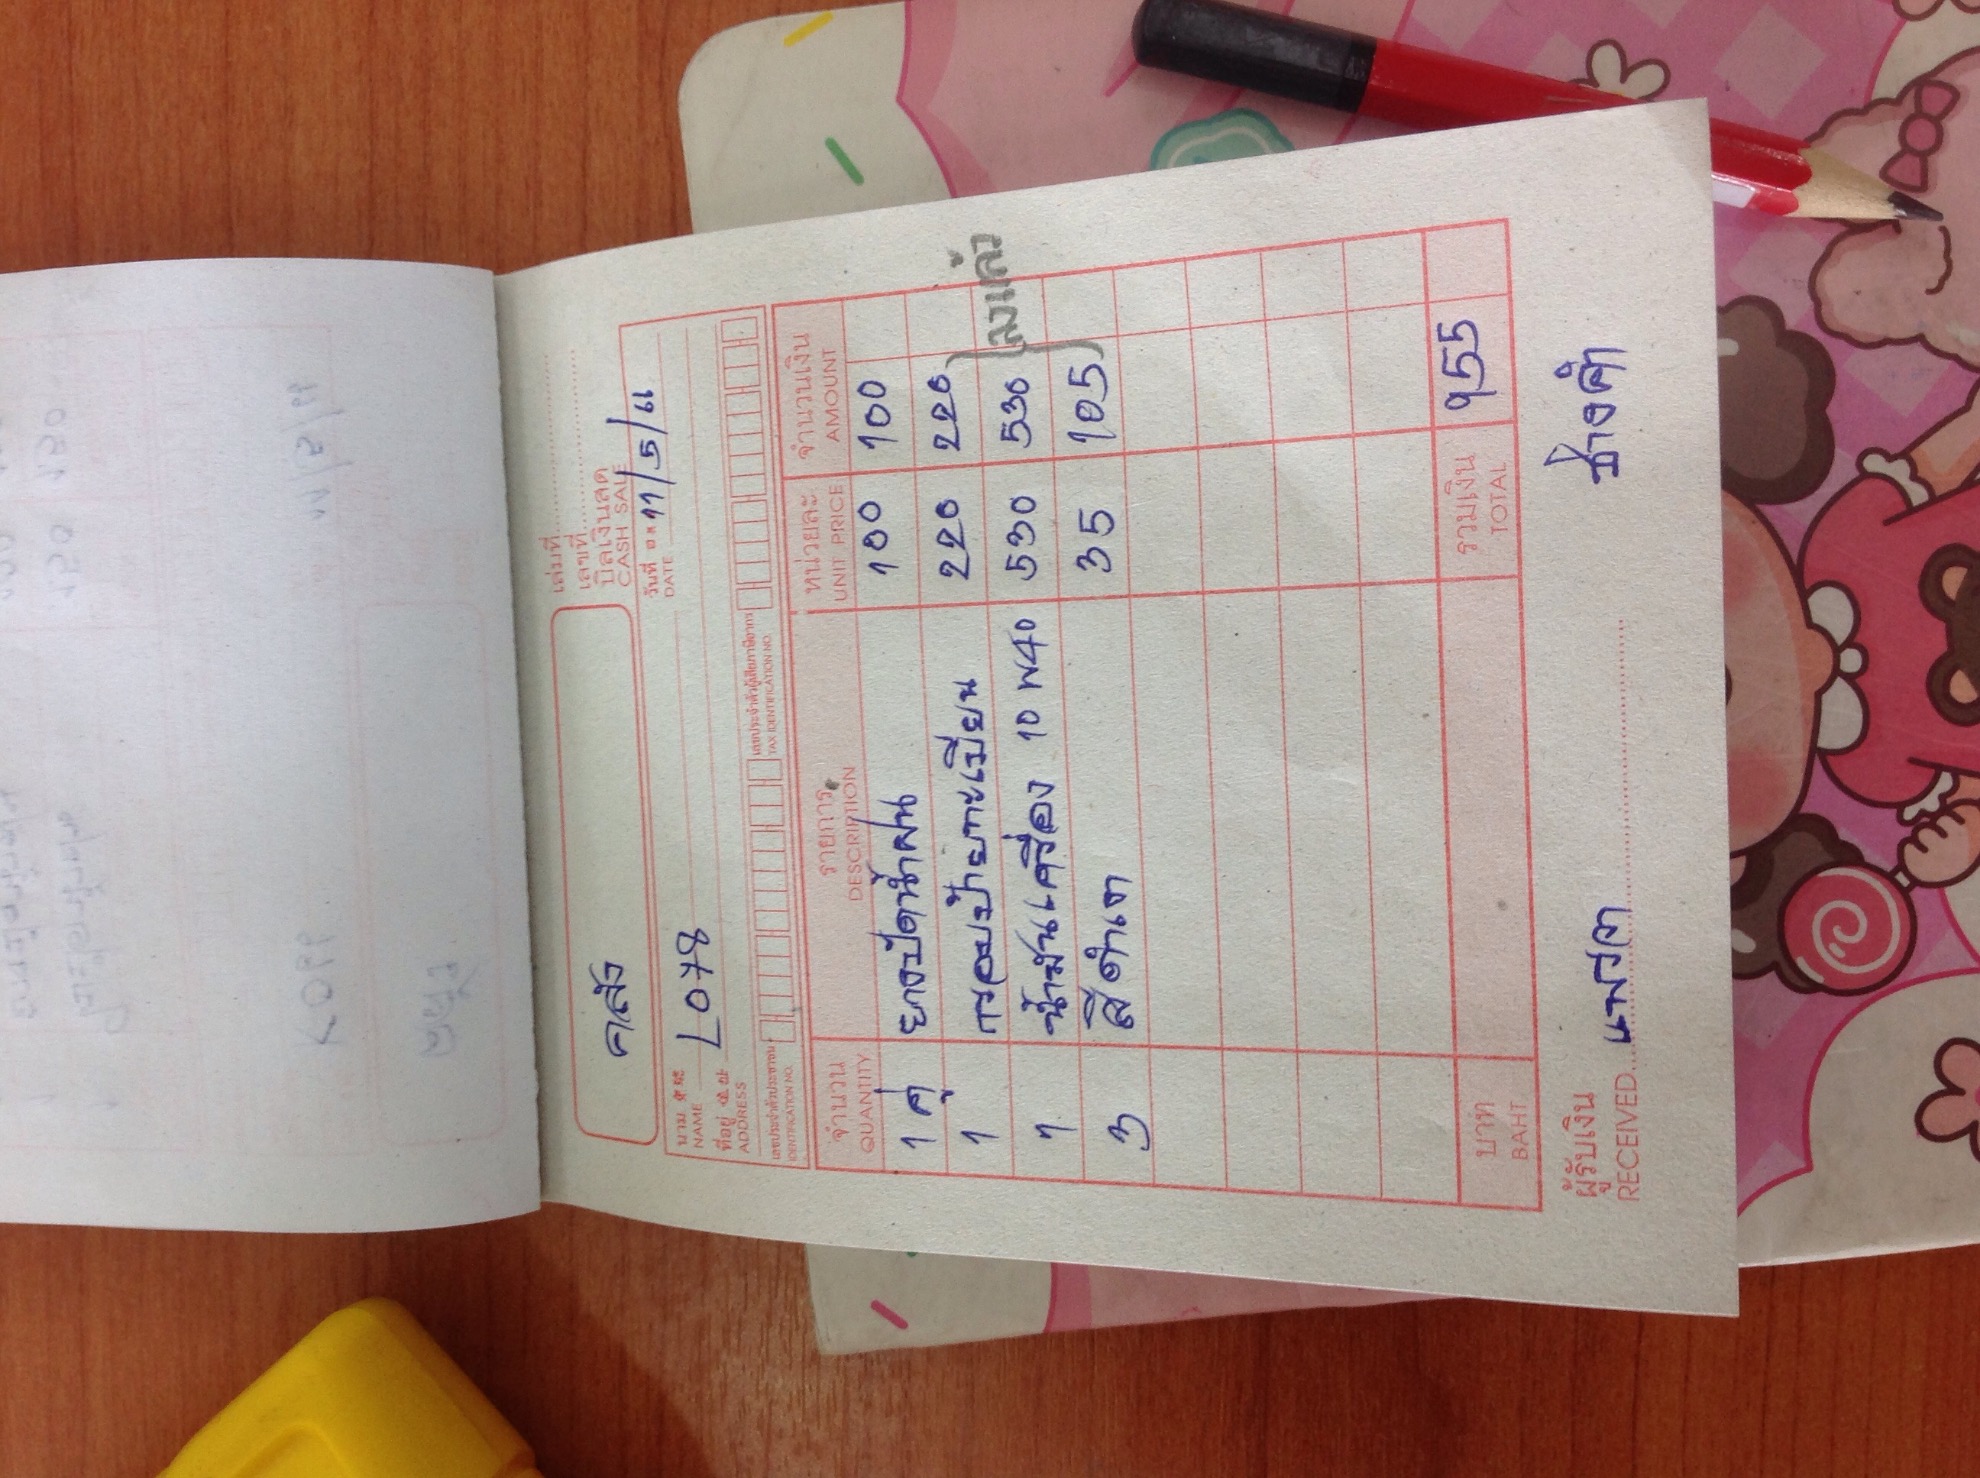 เล่มที่
เลขที่
บิลเงินสด
CASH SALE
คลัง
วันที่ 11/5/61
DATE
นาม L078
NAME
ที่อยู่
ADDRESS
เลขประจำตัวประชาชน เลขประจำตัวผู้เสียภาษีอากร
IDENTIFICATION NO. TAX IDENTIFICATION NO.
จำนวน รายการ หน่วยละ จำนวนเงิน
QUANTITY DESCRIPTION UNIT PRICE AMOUNT
1 คู่ ยางปัดน้ำฝน 100 100
1 กรอบป้ายทะเบียน 220 220
1 น้ำมันเครื่อง 10W40 530 530
3 สีดำเงา 35 105
ลงแล้ว
บาท รวมเงิน 955
BAHT TOTAL
ผู้รับเงิน
RECEIVED ช่างคำ